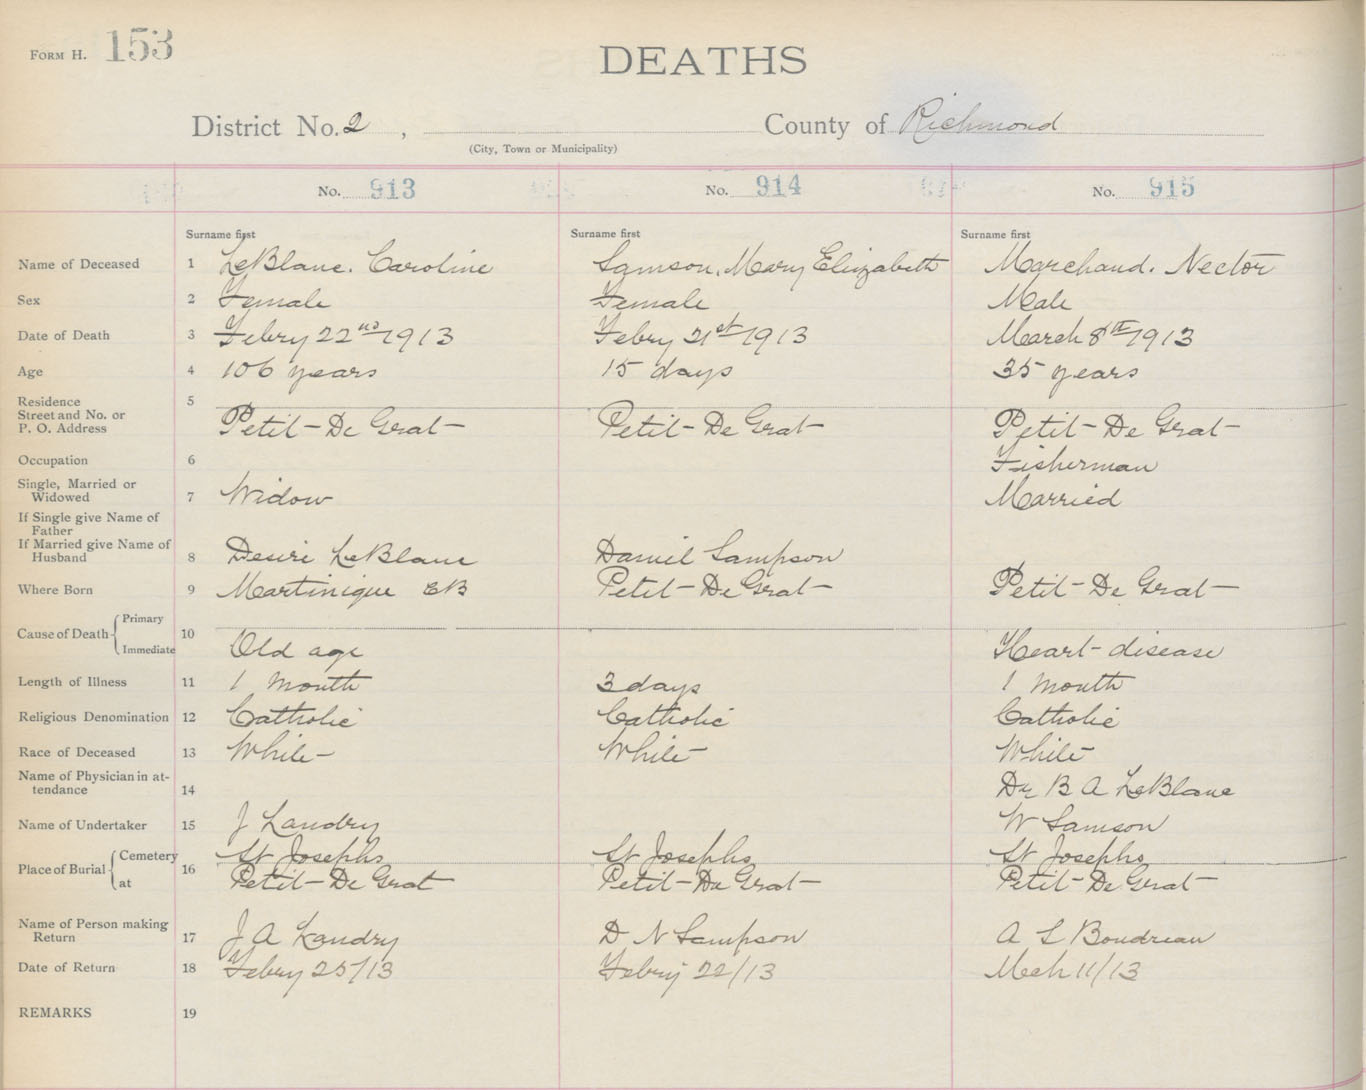 FORM H. 153
DEATHS
District No. 2 , County of Richmond
(City, Town or Municipality)
No. 913 No. 914 No. 915
Surname first Surname first Surname first
Name of Deceased 1 LeBlanc. Caroline Samson, Mary Elizabeth Marchand. Nector
Sex 2 Female Female Male
Date of Death 3 Febry 22nd 1913 Febry 21st 1913 March 8th 1913
Age 4 106 years 15 days 35 years
Residence 5
Street and No. or
P. O. Address Petit-De Grat Petit-De Grat Petit-De Grat
Occupation 6 Fisherman
Single, Married or
Widowed 7 Widow Married
If Single give Name of
Father
If Married give Name of
Husband 8 Desiri LeBlanc Daniel Sampson
Where Born 9 Martinique CB Petit-De Grat Petit-De Grat
Cause of Death Primary 10
Immediate Old age Heart-disease
Length of Illness 11 1 month 3 days 1 month
Religious Denomination 12 Catholic Catholic Catholic
Race of Deceased 13 White White White
Name of Physician in at-
tendance 14 Dr B A LeBlanc
Name of Undertaker 15 J Landry W Samson
Place of Burial Cemetery 16 St Josephs St Josephs St Josephs
at Petit-De Grat Petit-De Grat Petit-De Grat
Name of Person making
Return 17 J A Landry D N Sampson A L Boudreau
Date of Return 18 Febry 25/13 Febry 22/13 Mch 11/13
REMARKS 19